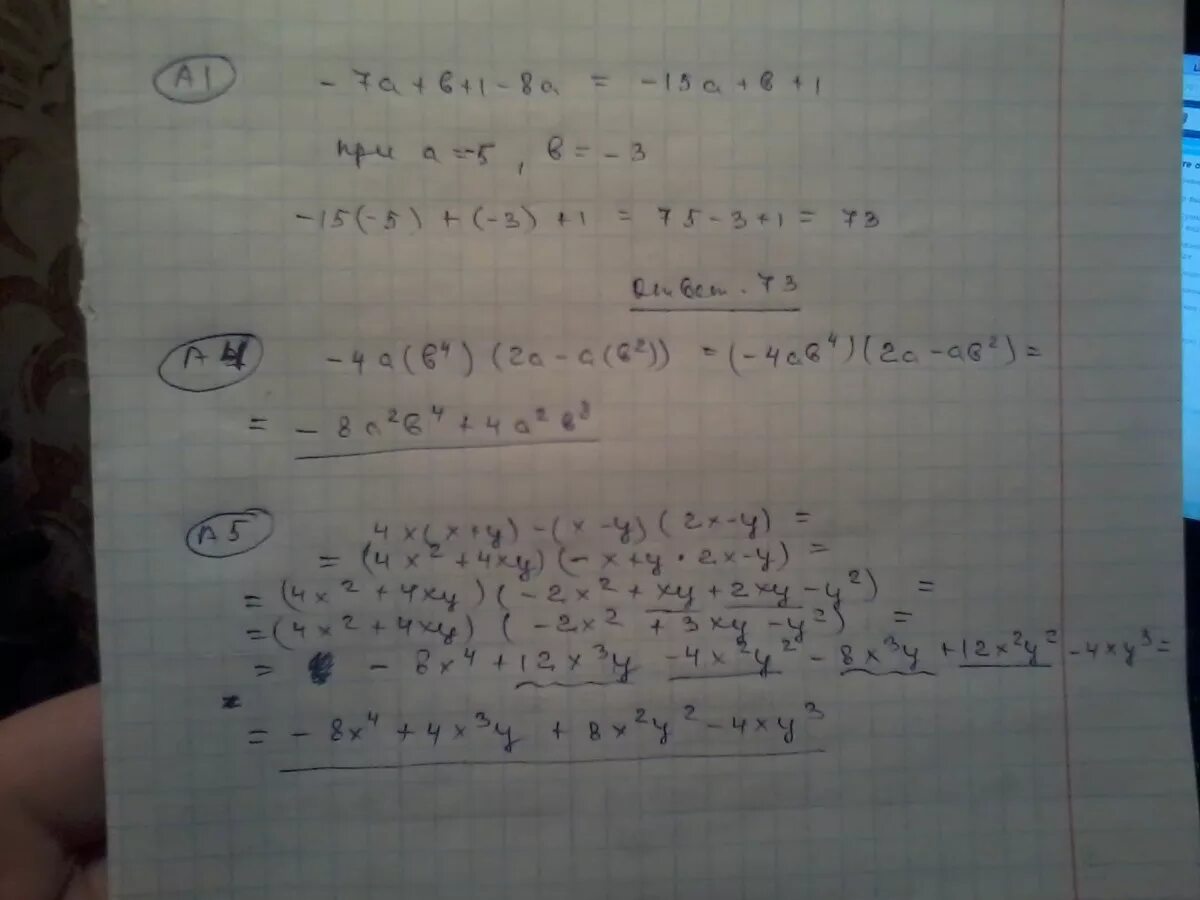 А1 - 7а + в + 1 - 8а = -15а + в + 1
при а = -5, в = -3
-15(-5) + (-3) + 1 = 75 - 3 + 1 = 73
Ответ. 73
А4 -4а(в⁴)(2а - а(в²)) = (-4ав⁴)(2а - ав²) =
= - 8а²в⁴ + 4а²в⁸
А5 4x(x+y) - (x-y)(2x-y) =
= (4x² + 4xy)(-x+y · 2x-y) =
= (4x² + 4xy)(-2x² + xy + 2xy - y²) =
= (4x² + 4xy)(-2x² + 3xy - y²) =
= - 8x⁴ + 12x³y - 4x²y² - 8x³y + 12x²y² - 4xy³ =
= - 8x⁴ + 4x³y + 8x²y² - 4xy³